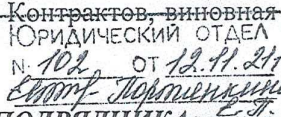 Контрактов, виновная
ЮРИДИЧЕСКИЙ ОТДЕЛ
N. 102 ОТ 12.11.21г
ПОДРЯДЧИКА